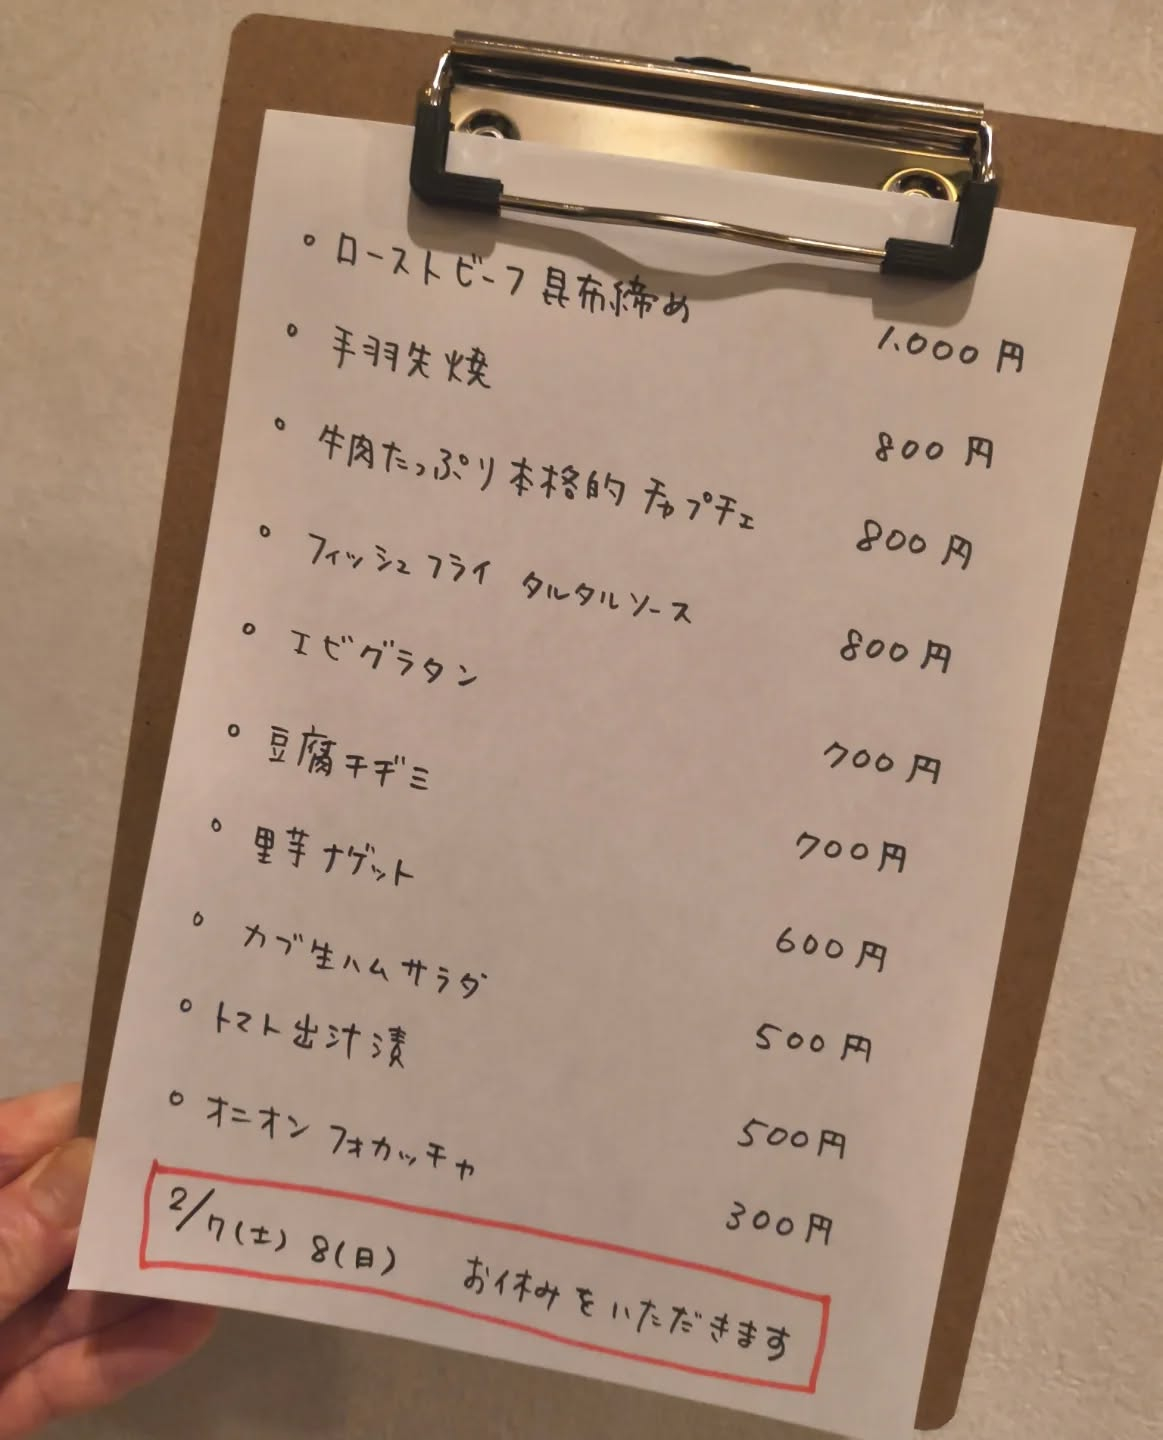 • ローストビーフ昆布締め 1.000円
• 手羽先焼 800円
• 牛肉たっぷり本格的チャプチェ 800円
• フィッシュフライ タルタルソース 800円
• エビグラタン 700円
• 豆腐チヂミ 700円
• 里芋ナゲット 600円
• カブ生ハムサラダ 500円
• トマト出汁漬 500円
• オニオンフォカッチャ 300円
2/7(土) 8(日) お休みをいただきます